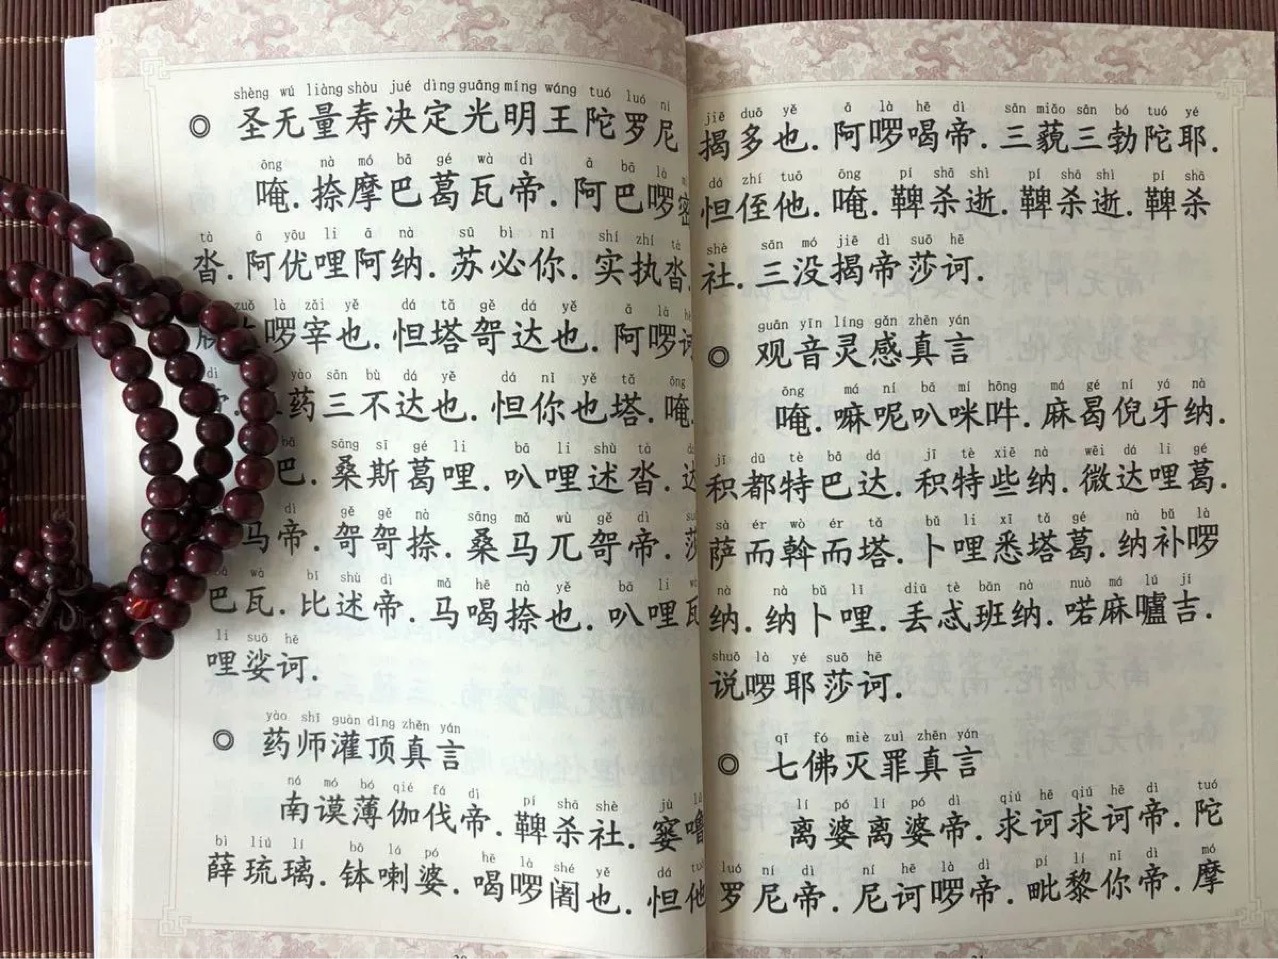 shèng wú liàng shòu jué dìng guāng míng wáng tuó luó ní
◎ 圣无量寿决定光明王陀罗尼
ōng nà mó bā gé wà dì ā bā là
唵.捺摩巴葛瓦帝.阿巴啰密
tà ā yōu li ā nà sū bì nǐ shí zhí tà
沓.阿优哩阿纳.苏必你.实执沓.
zuǒ là zǎi yě dá tǎ gě dá yě ā là
啰宰也.怛塔哿达也.阿啰诃
dì yào sān bù dá yě dá nǐ yě tǎ ōng
药三不达也.怛你也塔.唵.
bā sāng sī gé li bā li shù tà dá
巴.桑斯葛哩.叭哩述沓.达
dì gě gě nà sāng mǎ wù gě dì
马帝.哿哿捺.桑马兀哿帝.莎
bā wà bǐ shù dì mǎ hē nà yě bā li wà
巴瓦.比述帝.马喝捺也.叭哩瓦
li suō hē
哩娑诃.
yào shī guàn dǐng zhēn yán
◎ 药师灌顶真言
ná mó bó qié fá dì pí shā shè jù lú
南谟薄伽伐帝.鞞杀社.窭噜
bì liú lí bō lá pó hē là shé yě dá tuō
薛琉璃.钵喇婆.喝啰阇也.怛他
jiē duō yě ā là hē dì sān miǎo sān bó tuó yé
揭多也.阿啰喝帝.三藐三勃陀耶.
dá zhí tuō ōng pí shā shì pí shā shì pí shā
怛侄他.唵.鞞杀逝.鞞杀逝.鞞杀
shè sān mó jiē dì suō hē
社.三没揭帝莎诃.
guān yīn líng gǎn zhēn yán
◎ 观音灵感真言
ōng má ní bā mí hōng má gé ní yá nà
唵.嘛呢叭咪吽.麻曷倪牙纳.
jī dū tè bā dá jī tè xiē nà wēi dá li gé
积都特巴达.积特些纳.微达哩葛.
sà ér wò ér tǎ bǔ li xī tǎ gé nà bǔ là
萨而斡而塔.卜哩悉塔葛.纳补啰
nà nà bǔ lī diū tè bān nà nuò má lú jí
纳.纳卜哩.丢忒班纳.喏麻嚧吉.
shuō là yé suō hē
说啰耶莎诃.
qī fó miè zuì zhēn yán
◎ 七佛灭罪真言
lí pó lí pó dì qiú hē qiú hē dì tuó
离婆离婆帝.求诃求诃帝.陀
luó ní dì ní hē là dì pí lí nǐ dì mó
罗尼帝.尼诃啰帝.毗黎你帝.摩